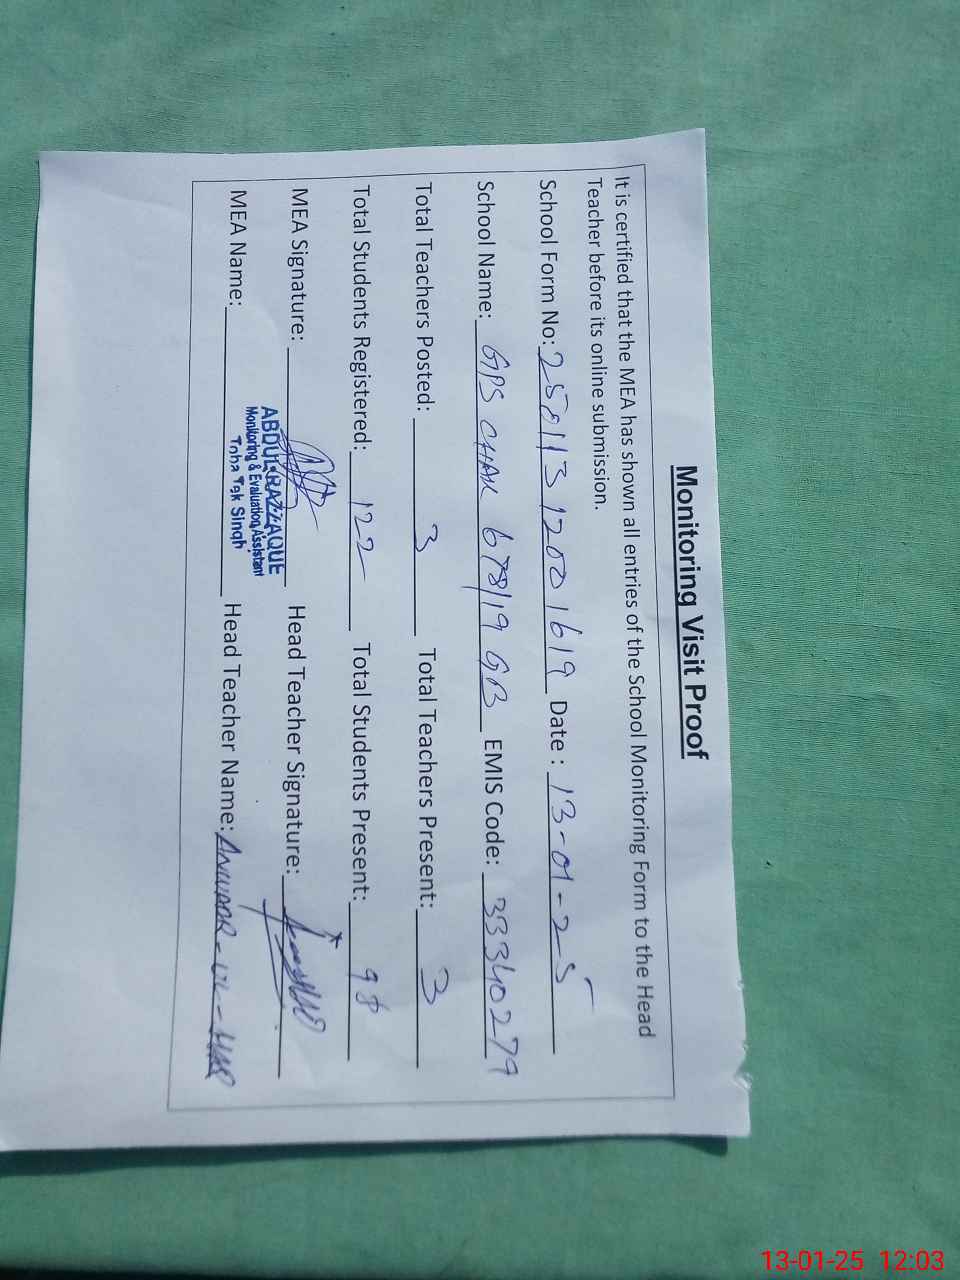 Monitoring Visit Proof
It is certified that the MEA has shown all entries of the School Monitoring Form to the Head
Teacher before its online submission.
School Form No: 25011312001619 Date : 13-01-25
School Name: GPS CHAK 678/19 GB EMIS Code: 33340279
Total Teachers Posted: 3 Total Teachers Present: 3
Total Students Registered: 122 Total Students Present: 98
MEA Signature: Head Teacher Signature:
ABDUL RAZZAQUE
Monitoring & Evaluation Assistant
Toba Tek Singh
MEA Name: Head Teacher Name: ANWAAR-UL-HAQ
13-01-25 12:03